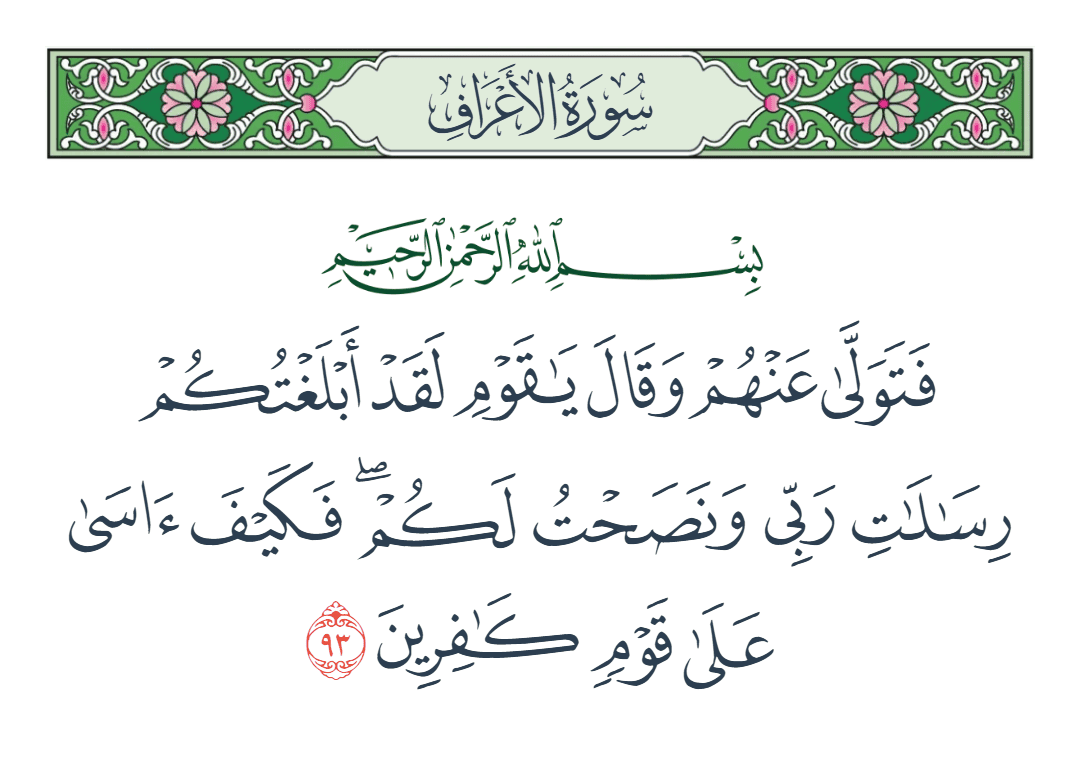 سُورَةُ الأَعْرَافِ
بِسْمِ ٱللَّهِ ٱلرَّحْمَٰنِ ٱلرَّحِيمِ
فَتَوَلَّىٰ عَنْهُمْ وَقَالَ يَٰقَوْمِ لَقَدْ أَبْلَغْتُكُمْ
رِسَٰلَٰتِ رَبِّى وَنَصَحْتُ لَكُمْ ۖ فَكَيْفَ ءَاسَىٰ
عَلَىٰ قَوْمٍ كَٰفِرِينَ ٩٣